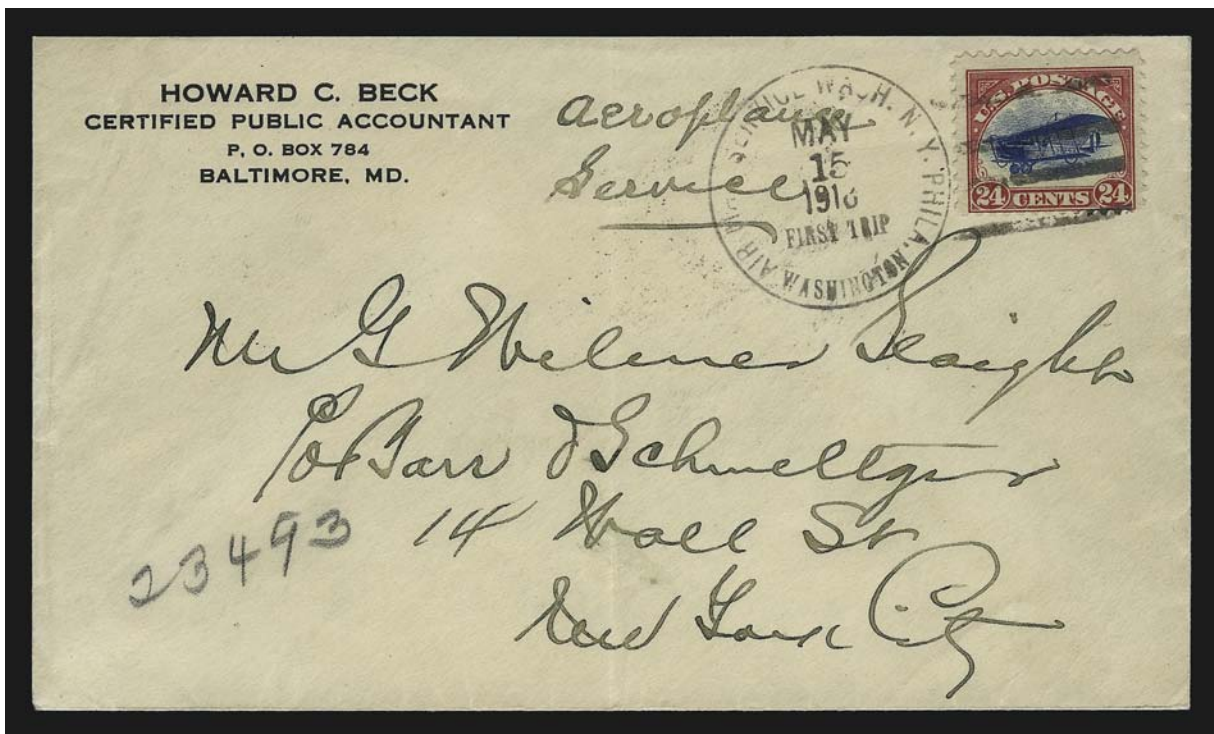 HOWARD C. BECK
CERTIFIED PUBLIC ACCOUNTANT
P. O. BOX 784
BALTIMORE, MD.
aeroplane
Service
AIR MAIL SERVICE WASH. N.Y. PHILA.
MAY
15
1918
FIRST TRIP
WASHINGTON
U.S. POSTAGE
24 CENTS 24
Mr G Wilmer
c/o Barr & Schmeltzer
14 Wall St
New York City
23493